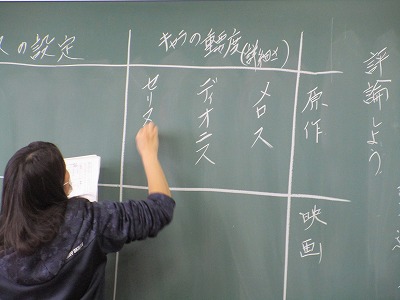 評論しよう
原作
映画
キャラの重要度(詳細さ)
メロス
ディオニス
セリヌ
の設定